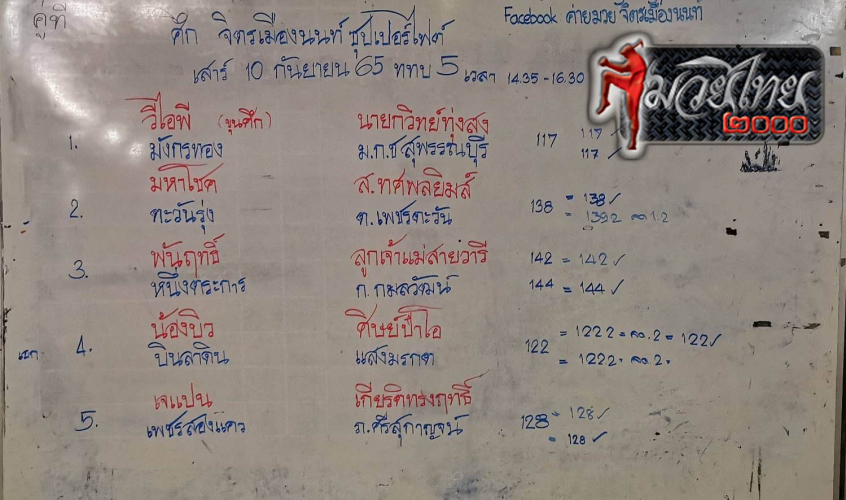 คู่ที่
ศึก จิตรเมืองนนท์ ซุปเปอร์ไฟต์
Facebook ค่ายมวย จิตรเมืองนนท์
เสาร์ 10 กันยายน 65 ททบ 5 เวลา 14.35 - 16.30
มวยไทย
๒๐๐๐
1. วีไอพี (ขุนศึก) นายกวิทย์ทุ่งสง 117 117 ✓
มังกรทอง ม.ก.ช สุพรรณบุรี 117 ✓
2. มหาโชค ส.ทศพลยิมส์ 138 = 138 ✓
ตะวันรุ่ง ต.เพชรตะวัน = 1392 ลด.1.2
3. พันฤทธิ์ ลูกเจ้าแม่สายวารี 142 = 142 ✓
หนึ่งตระการ ก.กมลวัฒน์ 144 = 144 ✓
เอก 4. น้องบิว ศิษย์ป๋าไอ 122 = 1222 = ลด.2 = 122 ✓
บินลาดิน แสงมรกต = 1222 ลด.2
5. เจแปน เกียรติทรงฤทธิ์ 128 = 128 ✓
เพชรสองแคว ภ.ศรีสุกาญจน์ = 128 ✓